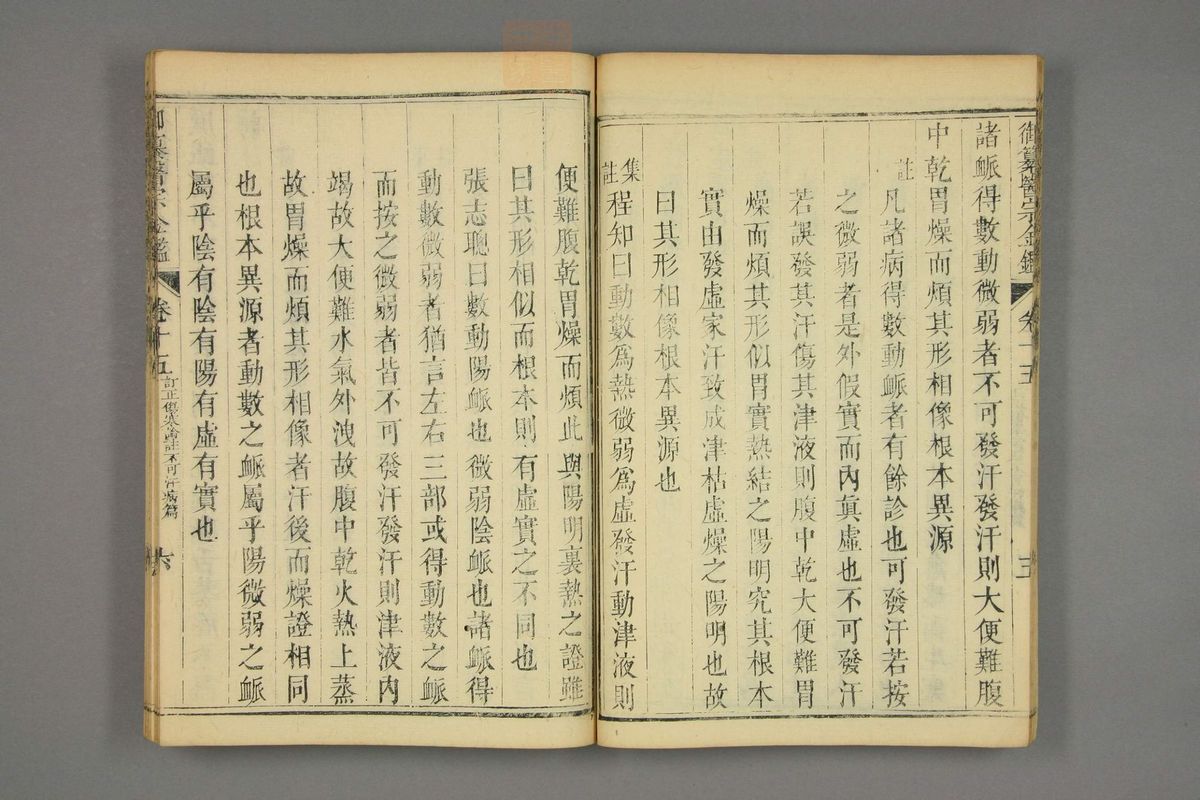 御纂醫宗金鑑 卷十五 五
諸脈得數動微弱者不可發汗發汗則大便難腹
中乾胃燥而煩其形相像根本異源
註 凡諸病得數動脈者有餘診也可發汗若按
之微弱者是外假實而內眞虛也不可發汗
若誤發其汗傷其津液則腹中乾大便難胃
燥而煩其形似胃實熱結之陽明究其根本
實由發虛家汗致成津枯虛燥之陽明也故
曰其形相像根本異源也
集註 程知曰動數爲熱微弱爲虛發汗動津液則
便難腹乾胃燥而煩此與陽明裏熱之證雖
曰其形相似而根本則有虛實之不同也
張志聰曰數動陽脈也微弱陰脈也諸脈得
動數微弱者猶言左右三部或得動數之脈
而按之微弱者皆不可發汗發汗則津液內
竭故大便難水氣外洩故腹中乾火熱上蒸
故胃燥而煩其形相像者汗後而燥證相同
也根本異源者動數之脈屬乎陽微弱之脈
屬乎陰有陰有陽有虛有實也
御纂醫宗金鑑 卷十五 訂正傷寒論註不可汗病篇 六